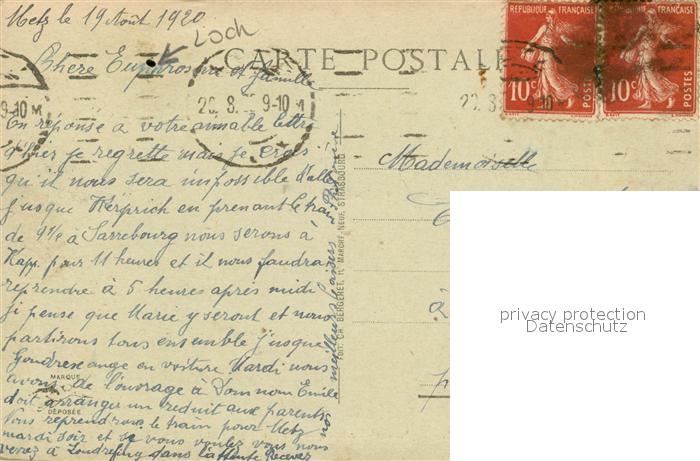 Metz le 19 Août 1920
Loch
CARTE POSTALE
RÉPUBLIQUE FRANÇAISE
RÉPUBLIQUE FRANÇAISE
10c POSTES
10c POSTES
Chère Euphrosine et famille
20.8. 9-10 M
20.8. 9-10
9-10 M
En réponse a votre aimable lettre
d'hier je regrette mais je crois
qu'il nous sera impossible d'aller
jusque Kerprich en prenant le train
de 9 1/2 à Sarrebourg nous serons à
Kapp. pour 11 heures et il nous faudra
reprendre à 5 heures après midi
ji pense que Marie y seront et nous
partirons tous ensemble jusque
Gondrexange en voiture Mardi nous
avons de l'ouvrage à Dom nom Emile
doit arranger un reduit aux parents
Nous reprendrons le train pour Metz
mardi soir et si vous voulez vous nous
verez à Loudrefing dans l'attente Recevez
nos meilleurs baisers
MARQUE
DÉPOSÉE
EDIT. CH. BERGERET, 11, MARCHÉ NEUF, STRASBOURG
Mademoiselle
à
privacy protection
Datenschutz